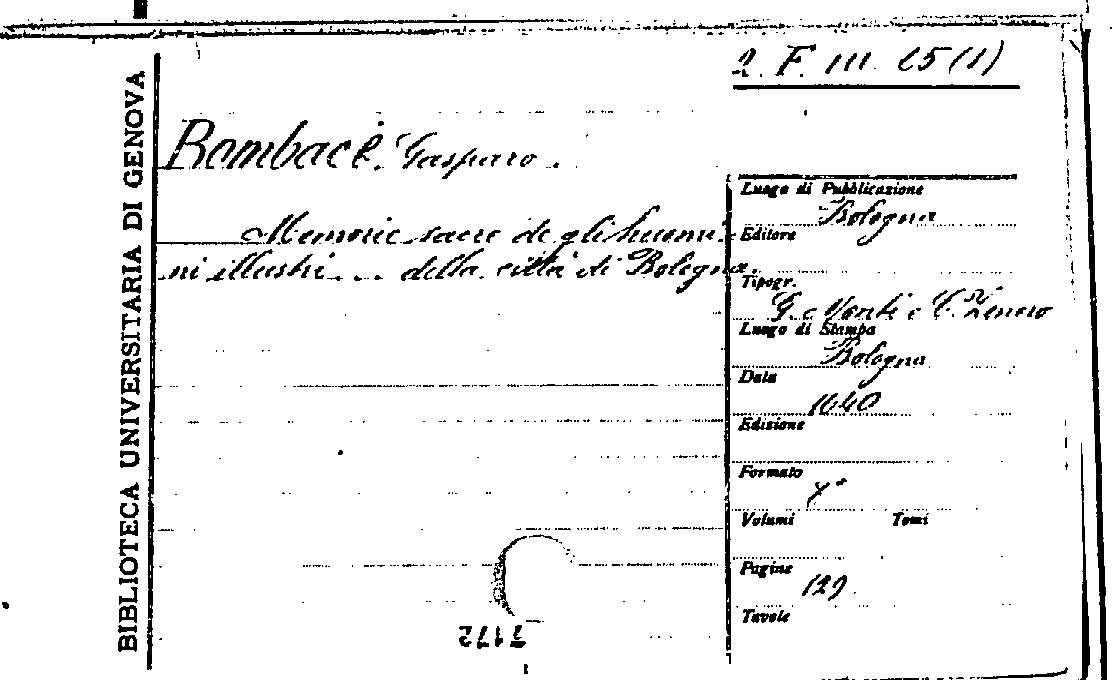 2. F. III. 15 (1)
BIBLIOTECA UNIVERSITARIA DI GENOVA
Bombaci. Gasparo.
Memorie sacre de gli huomi-
ni illustri... della città di Bologna.
Luogo di Pubblicazione
Bologna
Editore
Tipogr.
G. Monti e C. Zenero
Luogo di Stampa
Bologna
Data
1640
Edizione
Formato
Volumi Tomi
Pagine
129
Tavole